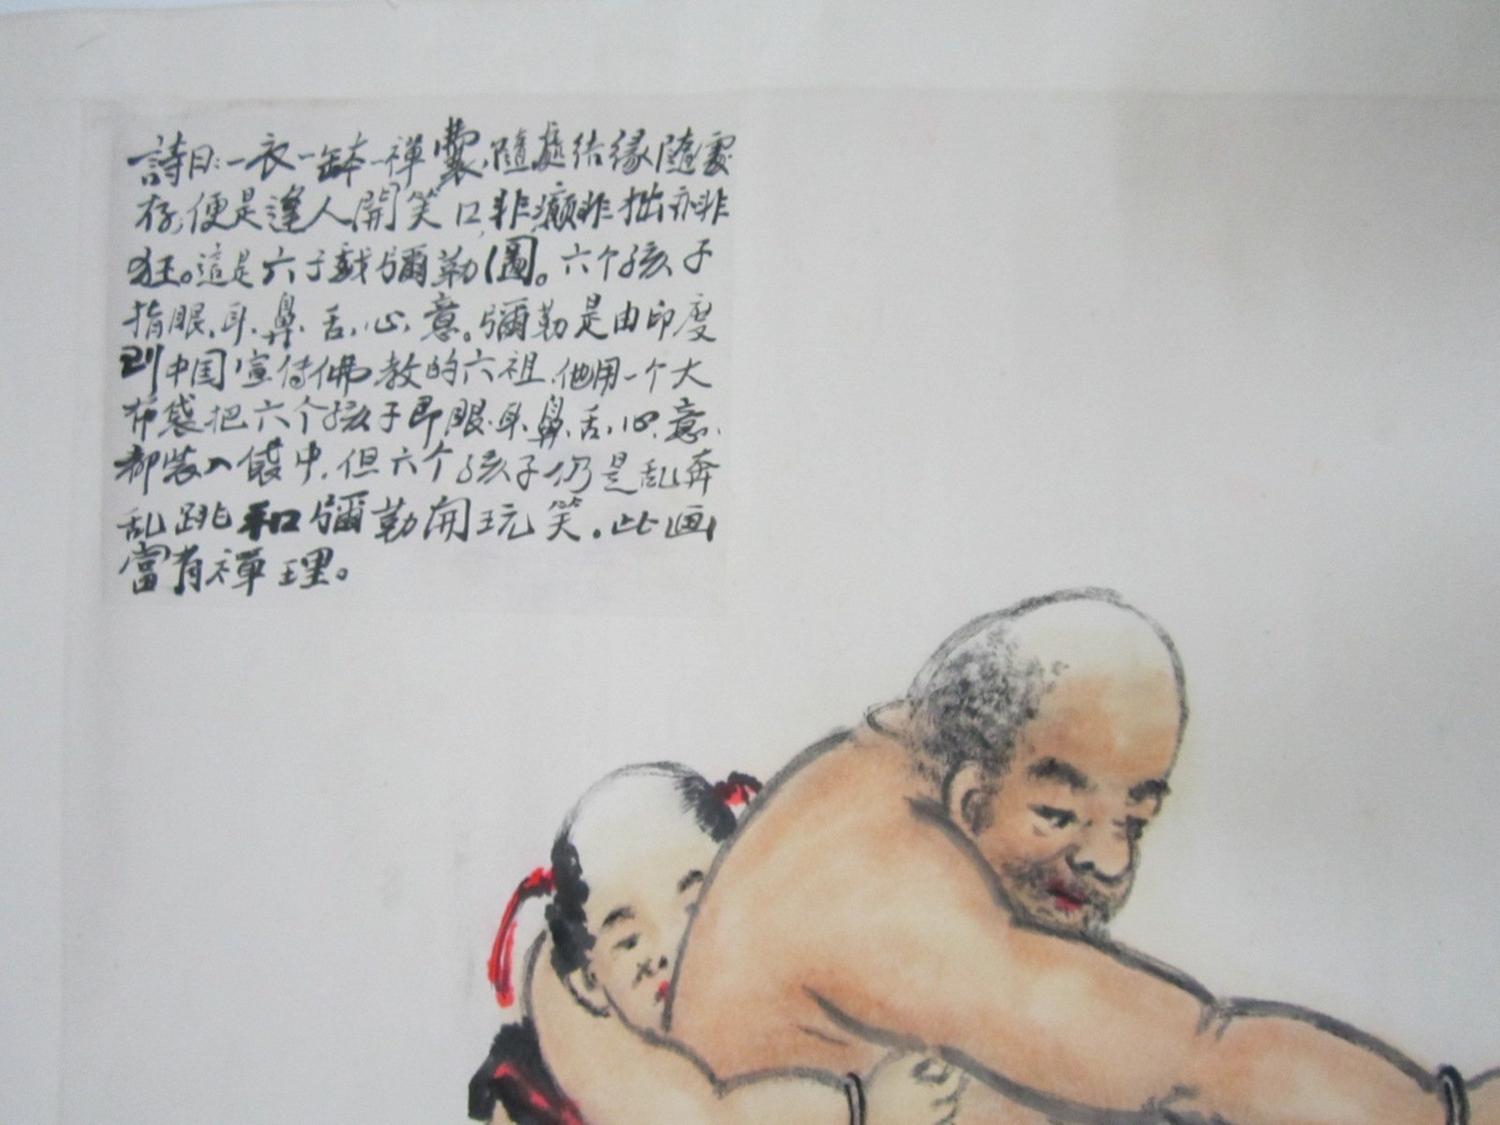 詩曰:一衣一缽一禪囊,隨處结缘隨處
存,便是逢人開笑口,非癲非拙亦非
狂。這是六子戲彌勒圖。六个孩子
指眼、耳、鼻、舌、心、意。彌勒是由印度
到中国宣传佛教的六祖.他用一个大
布袋把六个孩子即眼.耳.鼻.舌.心.意.
都装入袋中.但六个孩子仍是乱奔
乱跳和彌勒開玩笑.此画
富有禪理。